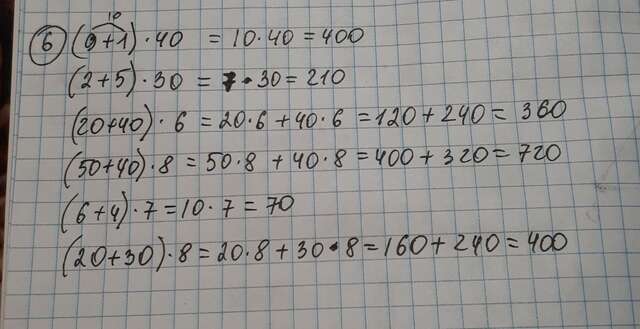 10
6 (9+1)·40 = 10·40 = 400
(2+5)·30 = 7·30 = 210
(20+40)·6 = 20·6 + 40·6 = 120 + 240 = 360
(50+40)·8 = 50·8 + 40·8 = 400 + 320 = 720
(6+4)·7 = 10·7 = 70
(20+30)·8 = 20·8 + 30·8 = 160 + 240 = 400